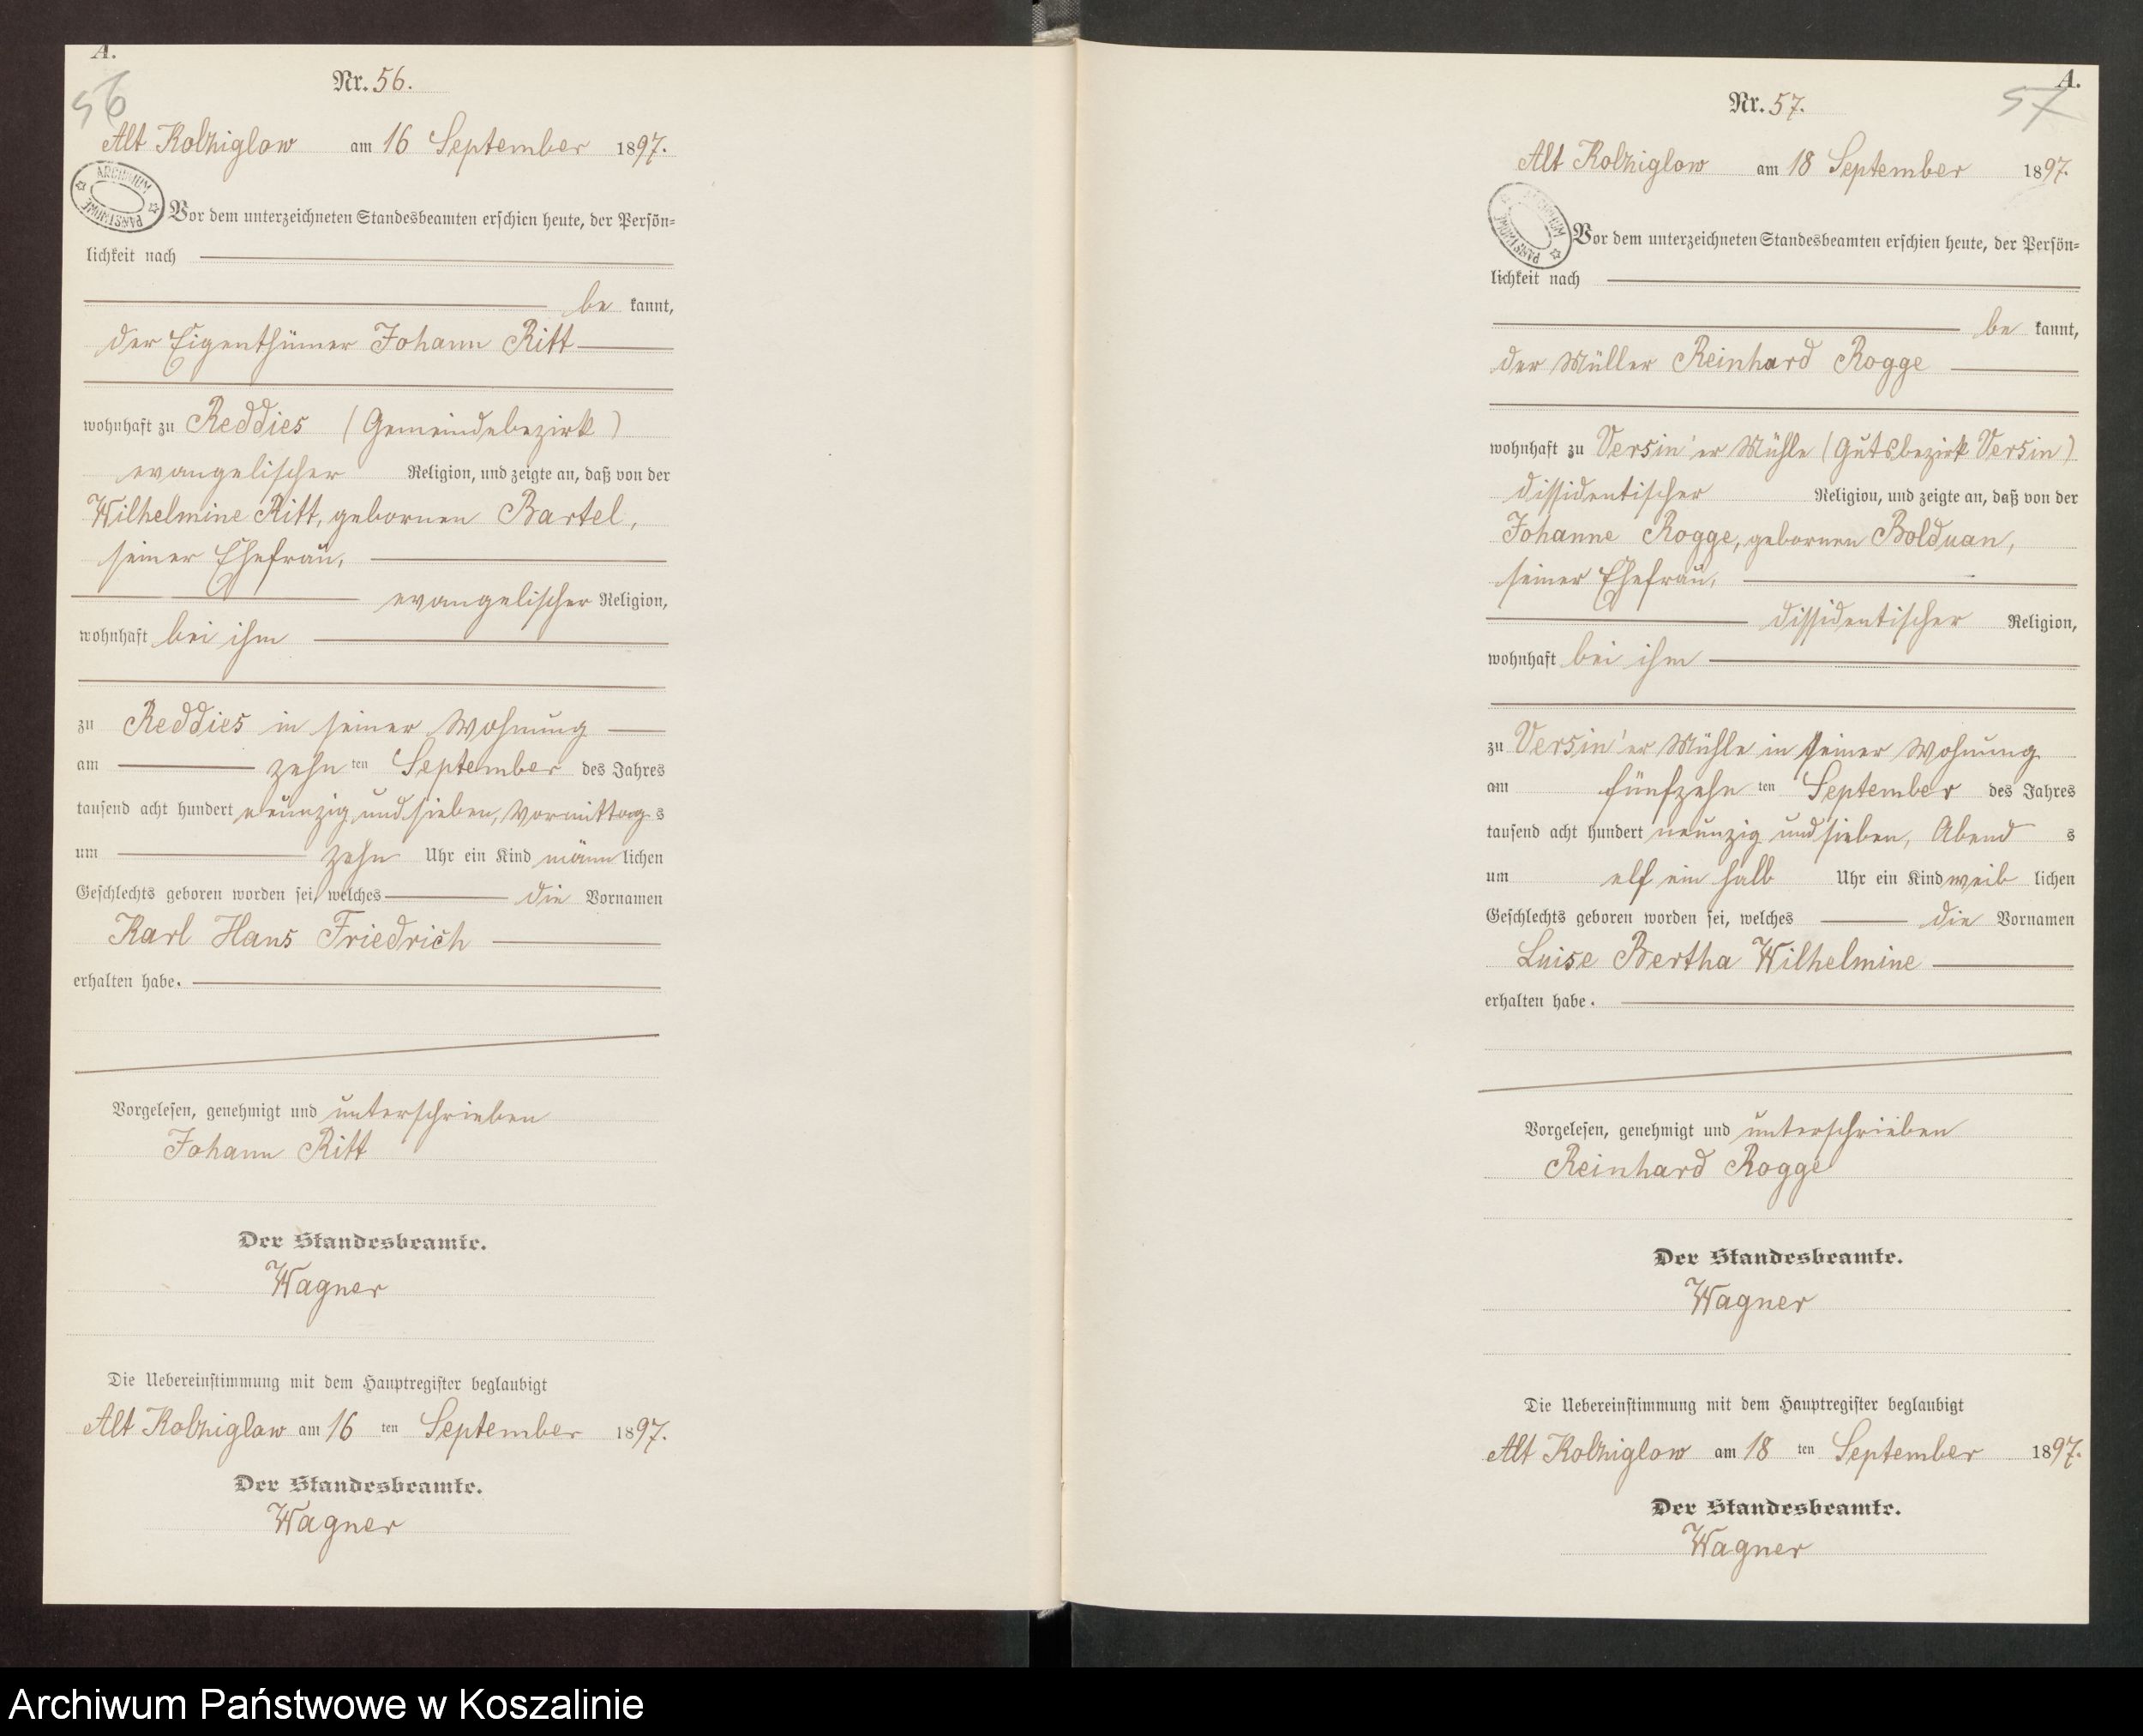 A.
56
Nr. 56.
Alt Kolziglow am 16 September 1897.
ARCHIWUM PAŃSTWOWE
Vor dem unterzeichneten Standesbeamten erschien heute, der Persön-
lichkeit nach
be kannt,
der Eigenthümer Johann Ritt
wohnhaft zu Reddies (Gemeindebezirk)
evangelischer Religion, und zeigte an, daß von der
Wilhelmine Ritt, gebornen Bartel,
seiner Ehefrau,
evangelischer Religion,
wohnhaft bei ihm
zu Reddies in seiner Wohnung
am zehn ten September des Jahres
tausend acht hundert neunzig und sieben, Vormittag s
um zehn Uhr ein Kind männ lichen
Geschlechts geboren worden sei, welches die Vornamen
Karl Hans Friedrich
erhalten habe.
Vorgelesen, genehmigt und unterschrieben
Johann Ritt
Der Standesbeamte.
Wagner
Die Uebereinstimmung mit dem Hauptregister beglaubigt
Alt Kolziglow am 16 ten September 1897.
Der Standesbeamte.
Wagner
A.
57
Nr. 57.
Alt Kolziglow am 18 September 1897.
ARCHIWUM PAŃSTWOWE
Vor dem unterzeichneten Standesbeamten erschien heute, der Persön-
lichkeit nach
be kannt,
der Müller Reinhard Rogge
wohnhaft zu Versin'er Mühle (Gutsbezirk Versin)
dissidentischer Religion, und zeigte an, daß von der
Johanne Rogge, gebornen Bolduan,
seiner Ehefrau,
dissidentischer Religion,
wohnhaft bei ihm
zu Versin'er Mühle in seiner Wohnung
am fünfzehn ten September des Jahres
tausend acht hundert neunzig und sieben, Abend s
um elf ein halb Uhr ein Kind weib lichen
Geschlechts geboren worden sei, welches die Vornamen
Luise Bertha Wilhelmine
erhalten habe.
Vorgelesen, genehmigt und unterschrieben
Reinhard Rogge
Der Standesbeamte.
Wagner
Die Uebereinstimmung mit dem Hauptregister beglaubigt
Alt Kolziglow am 18 ten September 1897.
Der Standesbeamte.
Wagner
Archiwum Państwowe w Koszalinie